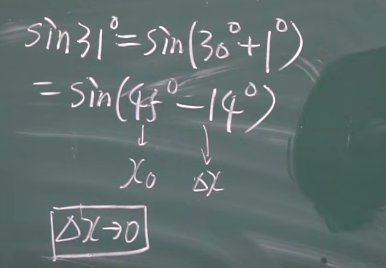 sin31°=sin(30°+1°)
=sin(45°-14°)
↓ ↓
x₀ Δx
Δx→0